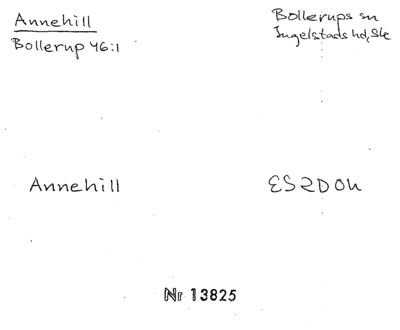 Annehill
Bollerup 46:1
Bollerups sn
Ingelstads hd, Ske
Annehill
ES2D0h
Nr 13825